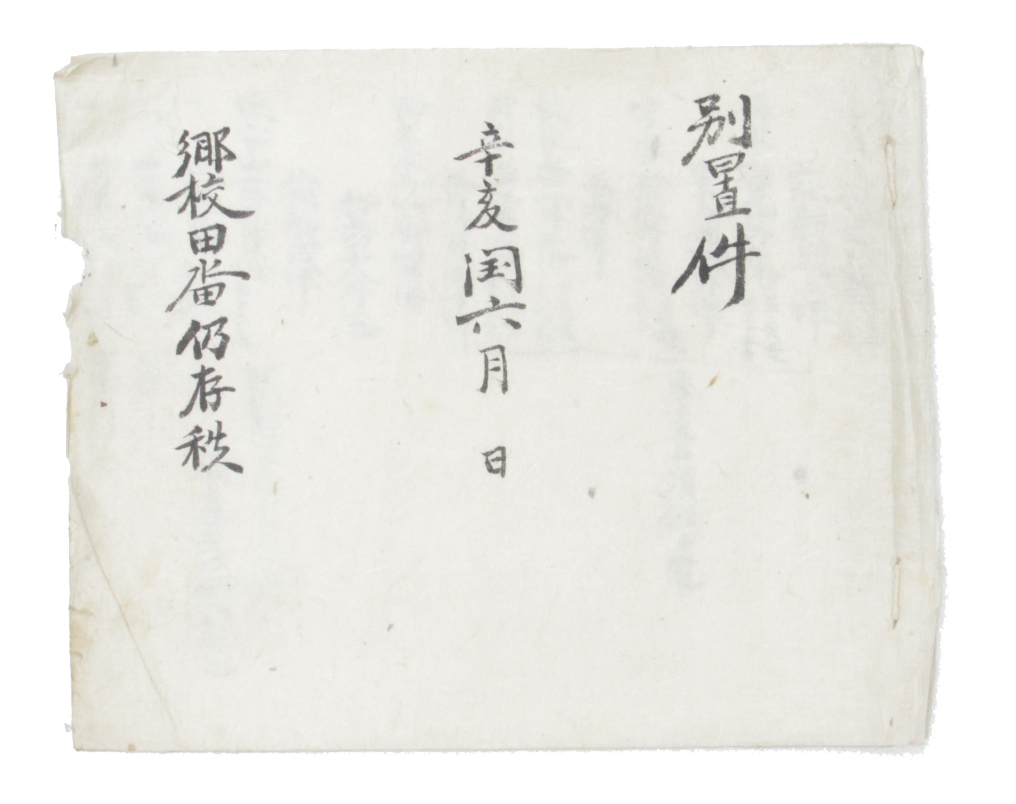 別置件
辛亥閏六月 日
鄕校田畓仍存秩